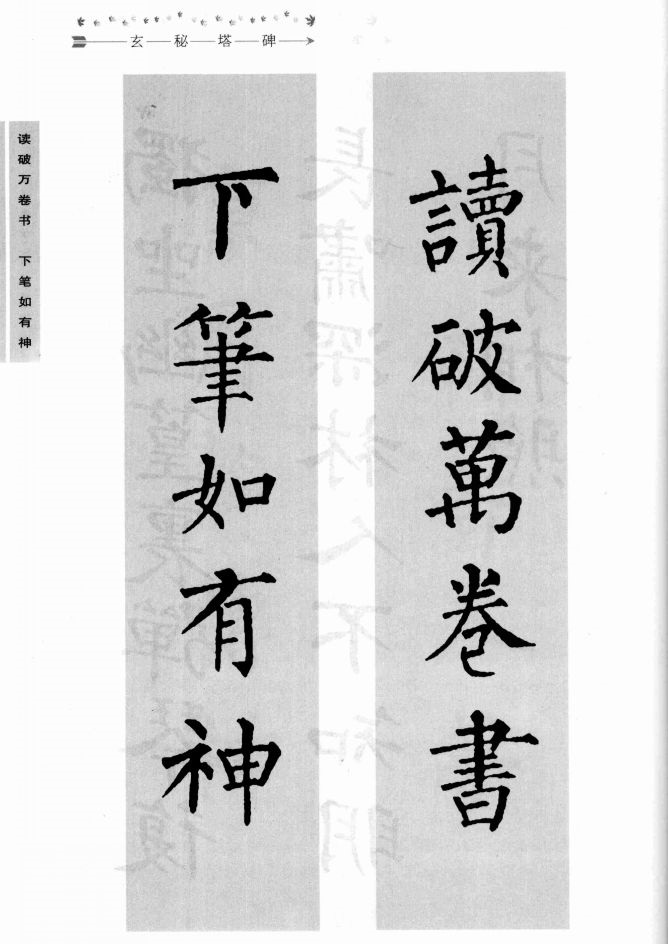 玄秘塔碑
讀破萬卷書
下筆如有神
读破万卷书 下笔如有神